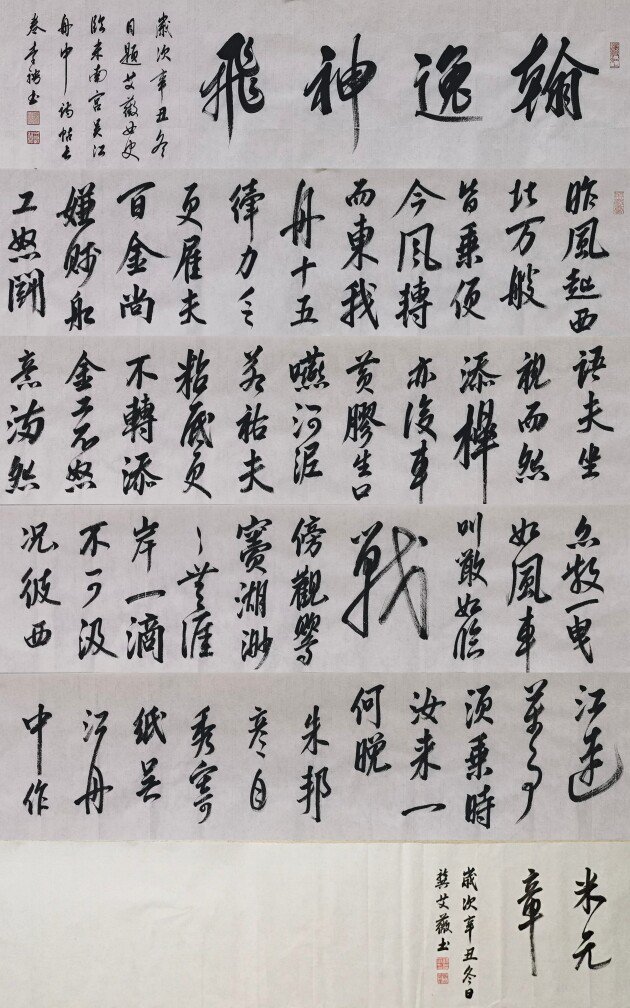 翰逸神飛
歲次辛丑冬
日題艾薇女史
臨米南宮吳江
舟中詩帖長
昨風起西
北万艘
皆乘便
今風轉
而東我
舟十五
縴力乏
更雇夫
百金尚
嫌賤船
工怒鬭
語夫坐
視而怨
添槔
亦復車
黄膠生口
嚥河泥
若祐夫
粘底更
不轉添
金工不怒
意滿怨
亦散一曳
如風車
叫噉如臨
戰
傍觀鶯
竇湖渺
〻無涯
岸一滴
不可汲
况彼西
江遠
萬事
須乘時
汝來一
何晚
朱邦
彥自
秀寄
紙吳
江舟
中作
米元
章
歲次辛丑冬日
艾薇書